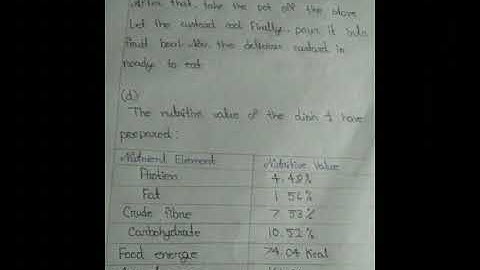 that, take the pot off the stove
Let the custard cool Finally, pour it into
fruit bowl. the delicious custard is
ready to eat
(d)
The nutritive value of the dish I have
prepared:
Nutrient Element Nutritive Value
Protien 4.48%
Fat 1.56%
Crude fibre 7.53%
Carbohydrate 10.52%
Food energe 74.04 Kcal